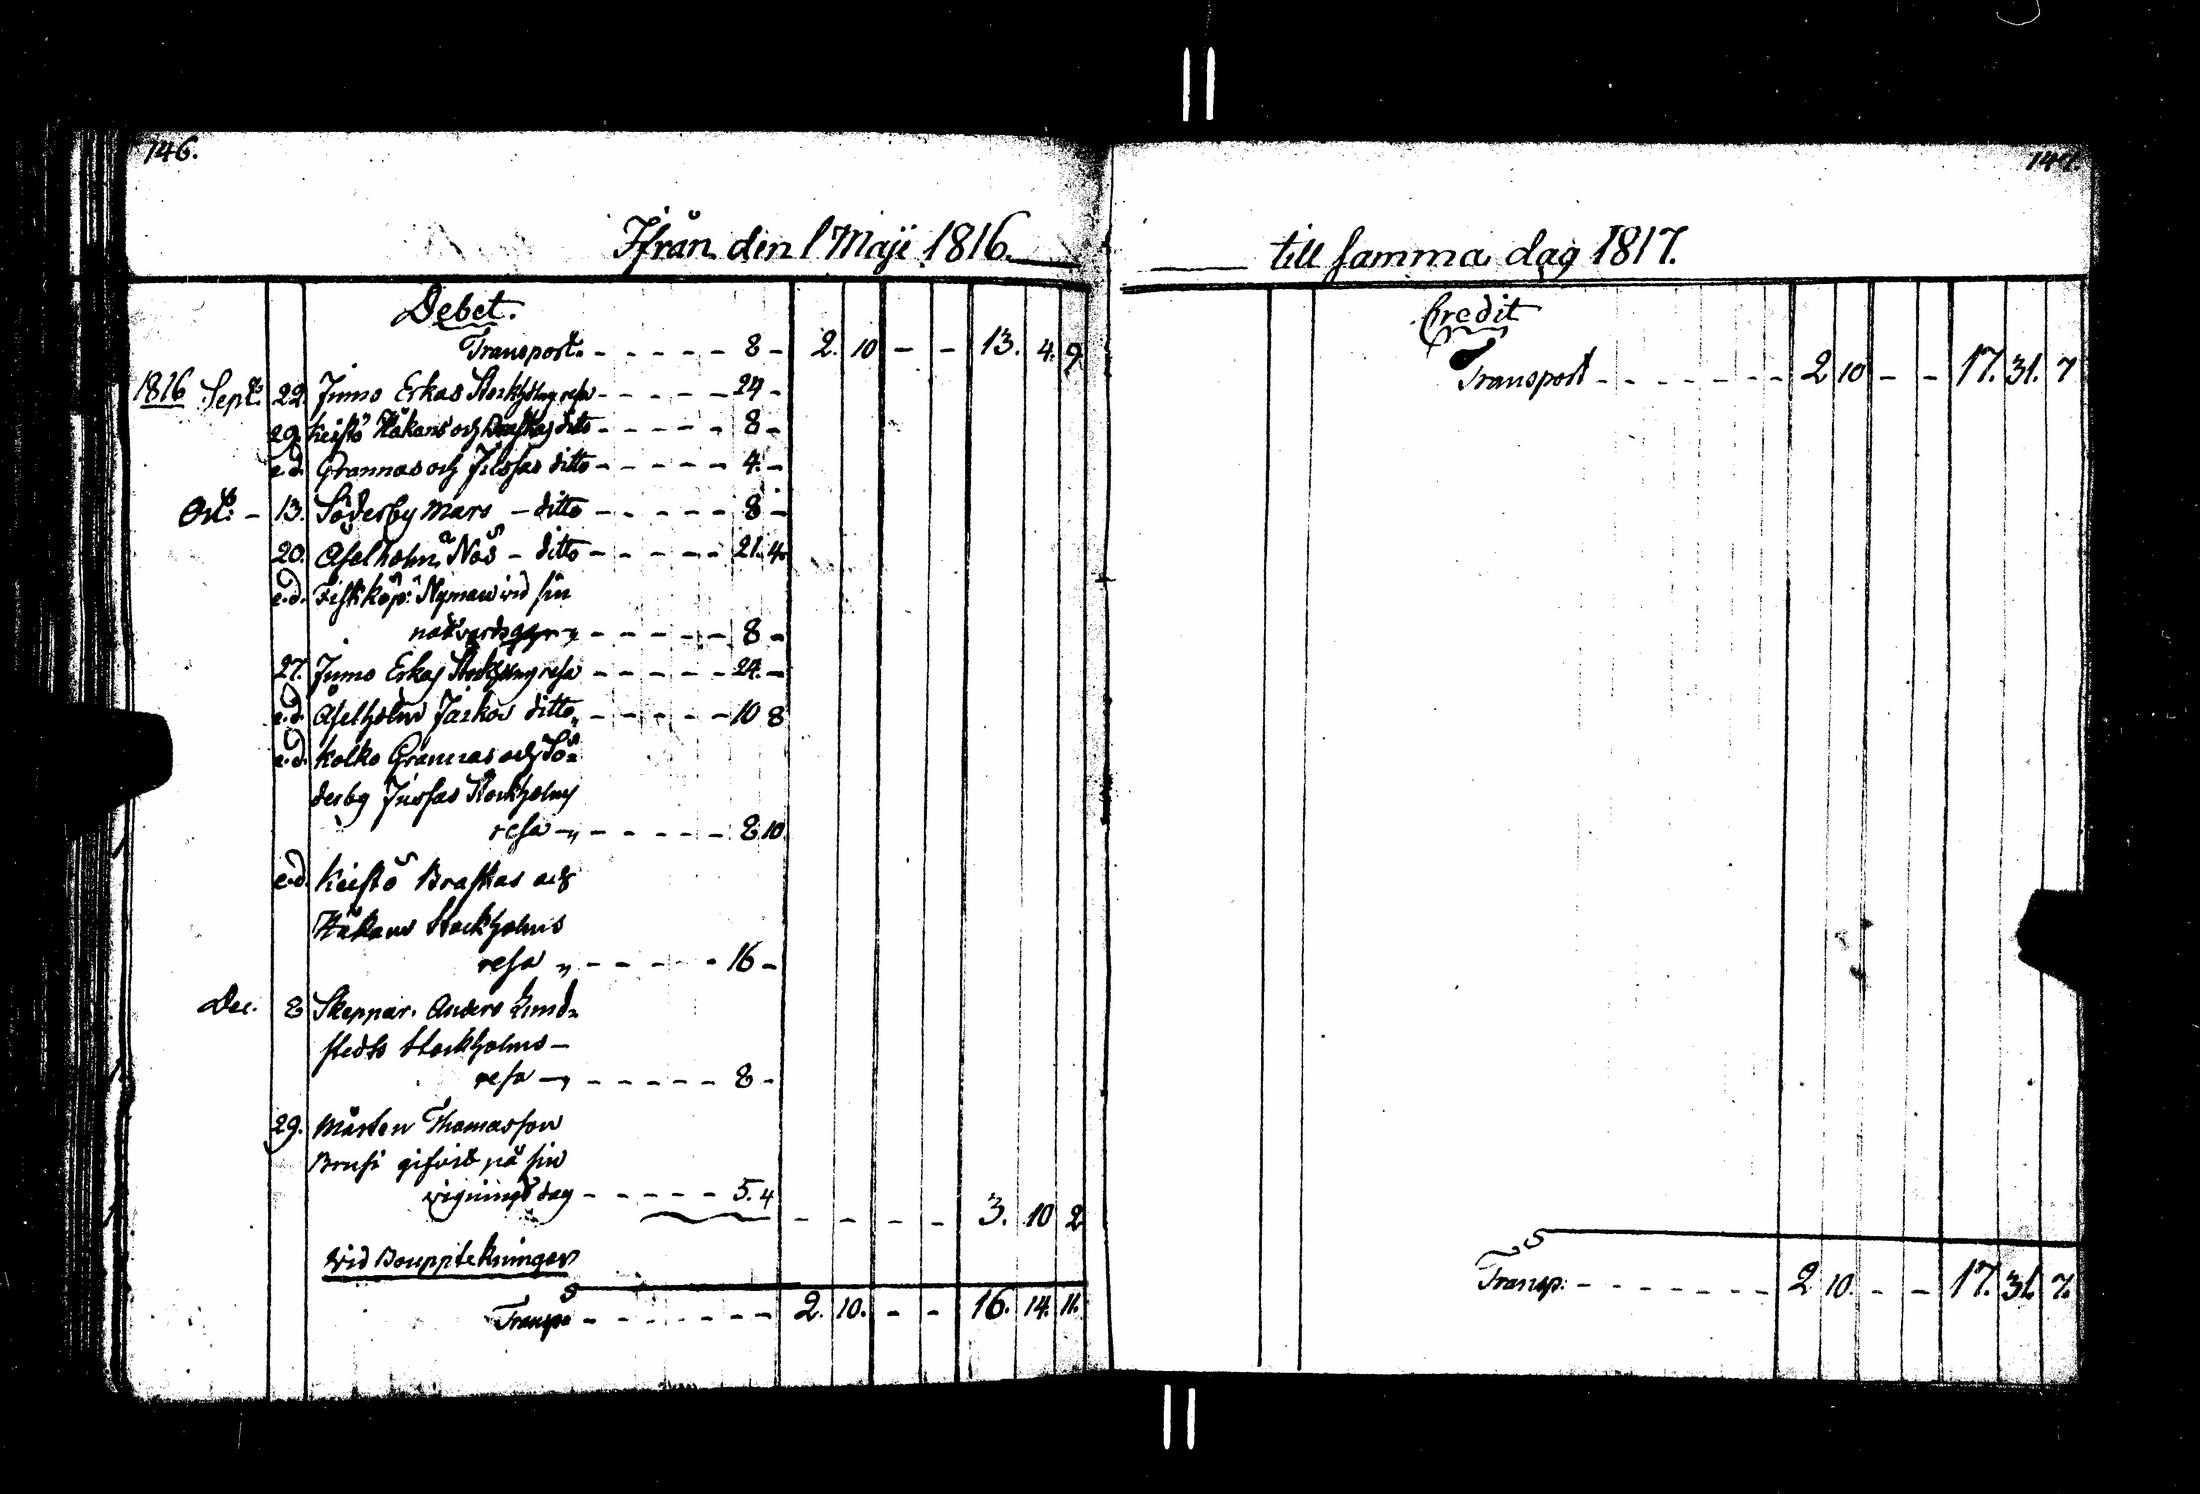 146.
Ifrån den 1 Maji 1816.
Debet.
Transport. - - - - - 8 - 2. 10 - - 13. 4. 9
1816 Sept: 22. Jumo Erkas Stockholms resa - - - - - 24 -
29. Keistö Håkans och Braskas ditto - - - - - 8 -
e.d. Grannas och Jussas ditto - - - - - 4. -
Oct: - 13. Söderby Mars - ditto - - - - - 8 -
20. Åselholm Näs - ditto - - - - - 21. 4.
e.d. Fiskköp: Nyman vid sin
- - - - - 8 -
27. Jumo Erkas Stockholms resa - - - - - 24. -
e.d. Åselholm Jaskas ditto - - - - - 10 8
e.d. Kolko Grannas och Sö-
derby Jussas Stockholms
resa - - - - - 8 10.
e.d. Keistö Braskas och
Håkans Stockholms
resa - - - - - 16 -
Dec. 8 Skeppar. Anders Lund-
stedts Stockholms -
resa - - - - - 8 -
29. Mårten Thomasson
Brusi gifvit på sin
vignings dag - - - - - 5. 4
- - - - 3. 10 2
vid Bouppteckningar
Transp: - - - - - - - 2. 10. - - 16. 14. 11.
147.
till samma dag 1817.
Credit
Transport - - - - - - - 2 10 - - 17. 31. 7
Transp: - - - - - - - 2 10. - - 17. 31. 7.